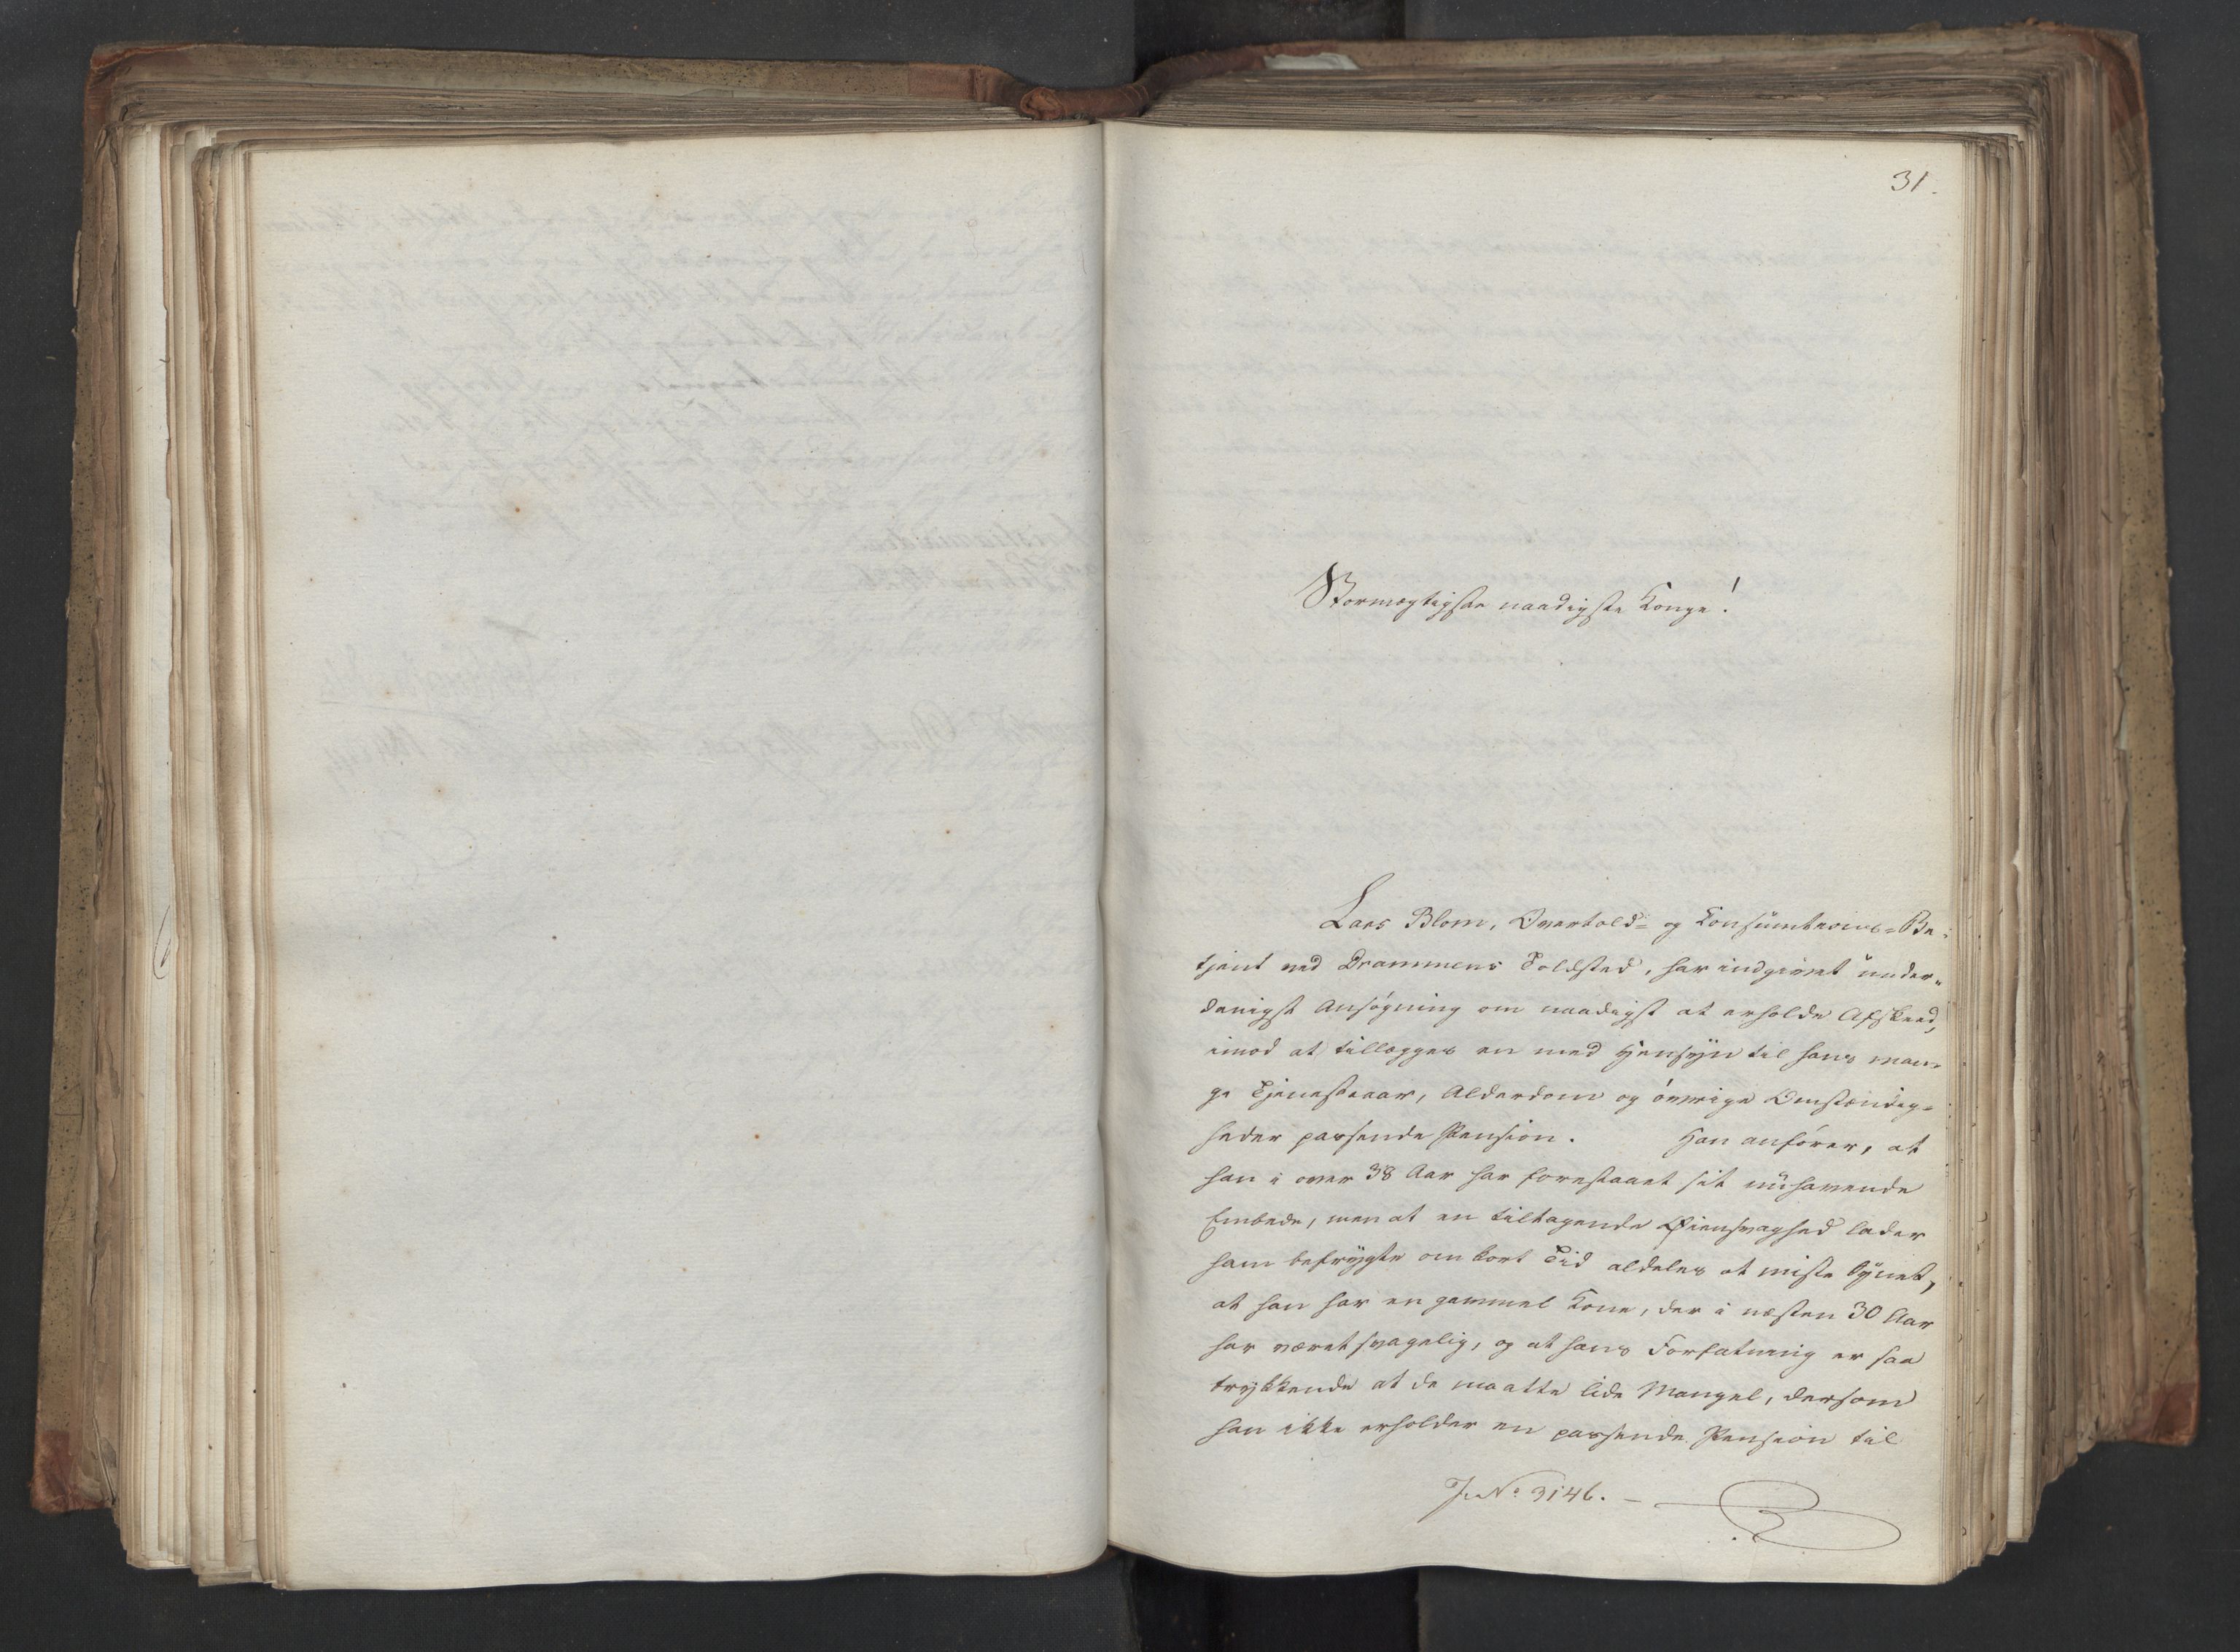 31.
Stormægtigste naadigste Konge!
Lars Blom, Overtold- og Konsumtions-Be-
tjent ved Drammens Toldsted, har indgivet under-
danigst Ansøgning om naadigst at erholde Afskeed,
imod at tillægges en med Hensyn til hans man-
ge Tjenesteaar, Alderdom og øvrige Omstændig-
heder passende Pension. Han anfører, at
han i over 38 Aar har forestaaet sit nuhavende
Embede, men at en tiltagende Øiensvaghed lader
ham befrygte om kort Tid aldeles at miste Synet,
at han har en gammel Kone, der i næsten 30 Aar
har været svagelig, og at hans Forfatning er saa
trykkende at de maatte lide Mangel, dersom
han ikke erholder en passende Pension til
J. No 3146. –